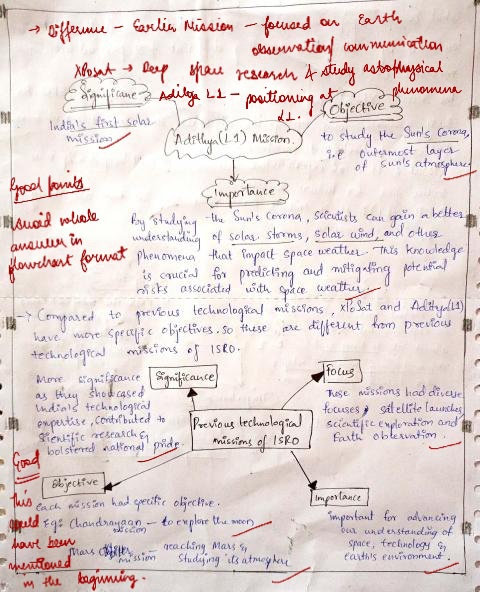 → Difference - Earlier Mission - focused on Earth
observation/communication
XPosat → Deep space research & study astrophysical
phenomena
Significane
Aditya L1 - positioning at
L1.
Objective
India's first solar
mission
Adithya(L1) Mission.
to study the Sun's Corona,
i.e outermost layer
of sun's atmosphere
Importance
Good points
Avoid whole
answer in
flowchart format
By studying the Sun's Corona, scientists can gain a better
understanding of solar storms, solar wind, and other
phenomena that impact space weather. This knowledge
is crucial for predicting and mitigating potential
risks associated with space weather.
→ Compared to previous technological missions, XPoSat and Aditya(L1)
have more specific objectives. so these are different from previous
technological missions of ISRO.
Significance
Focus
More significance
as they showcased
India's technological
expertise, contributed to
Scientific research &
bolstered national pride.
Previous technological
missions of ISRO
These missions had diverse
focuses, satellite launches,
scientific exploration and
Earth observation.
Good
Objective
Importance
each mission had specific objective.
Eg: Chandrayaan mission - to explore the moon
Mars mission reaching Mars &
studying its atmosphere
important for advancing
our understanding of
space, technology &
earth's environment.
This
could
have been
mentioned
in the beginning.